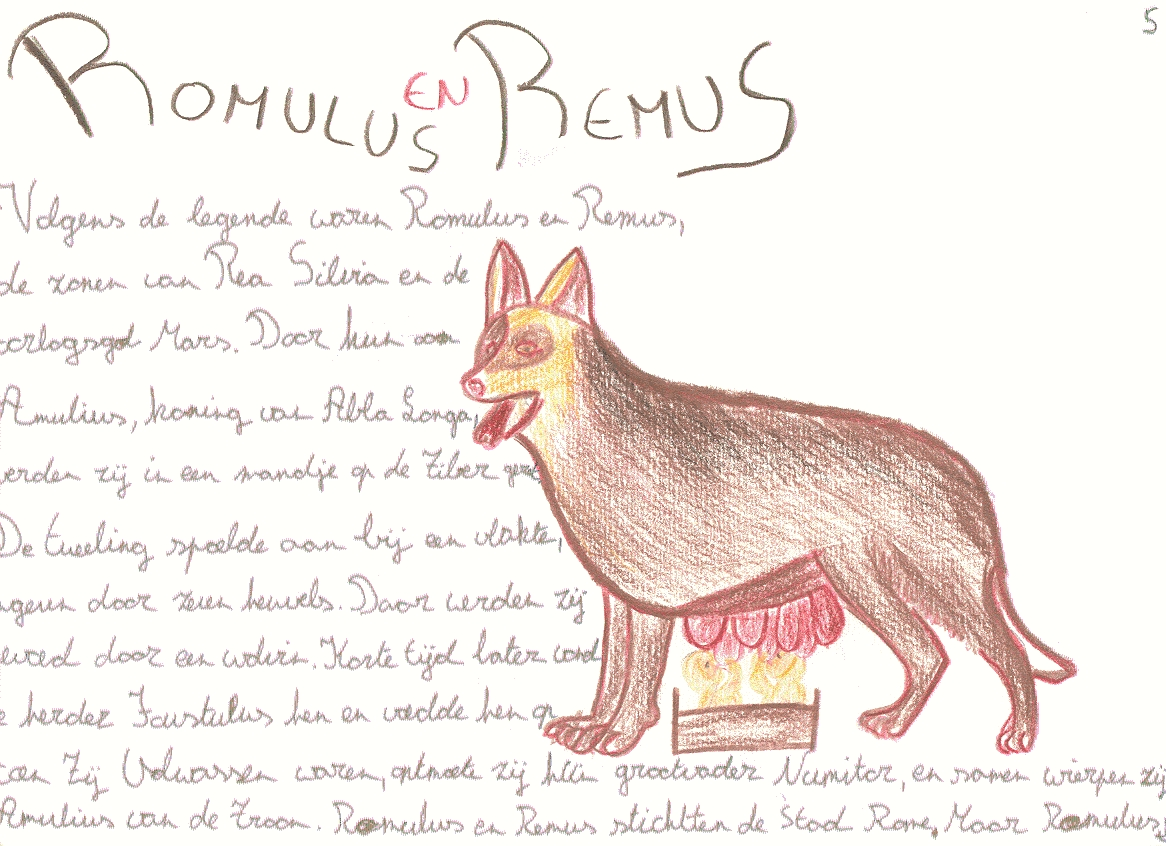 5
ROMULUS EN REMUS
Volgens de legende waren Romulus en Remus,
de zonen van Rea Silvia en de
oorlogsgod Mars. Door hun oom
Amulius, koning van Abla Longa,
erden zij in een mandje op de Tiber
De tweeling spoelde aan bij een vlakte,
ngeven door zeven heuvels. Daar werden zij
evoed door een wolvin. Korte tijd later vond
e herder Faustulus hen en voedde hen op
toen zij volwassen waren, ontmoete zij hun grootvader Numitor, en samen wierpen zij
Amulius van de troon. Romulus en Remus stichtten de stad Rome, Maar Romulus,